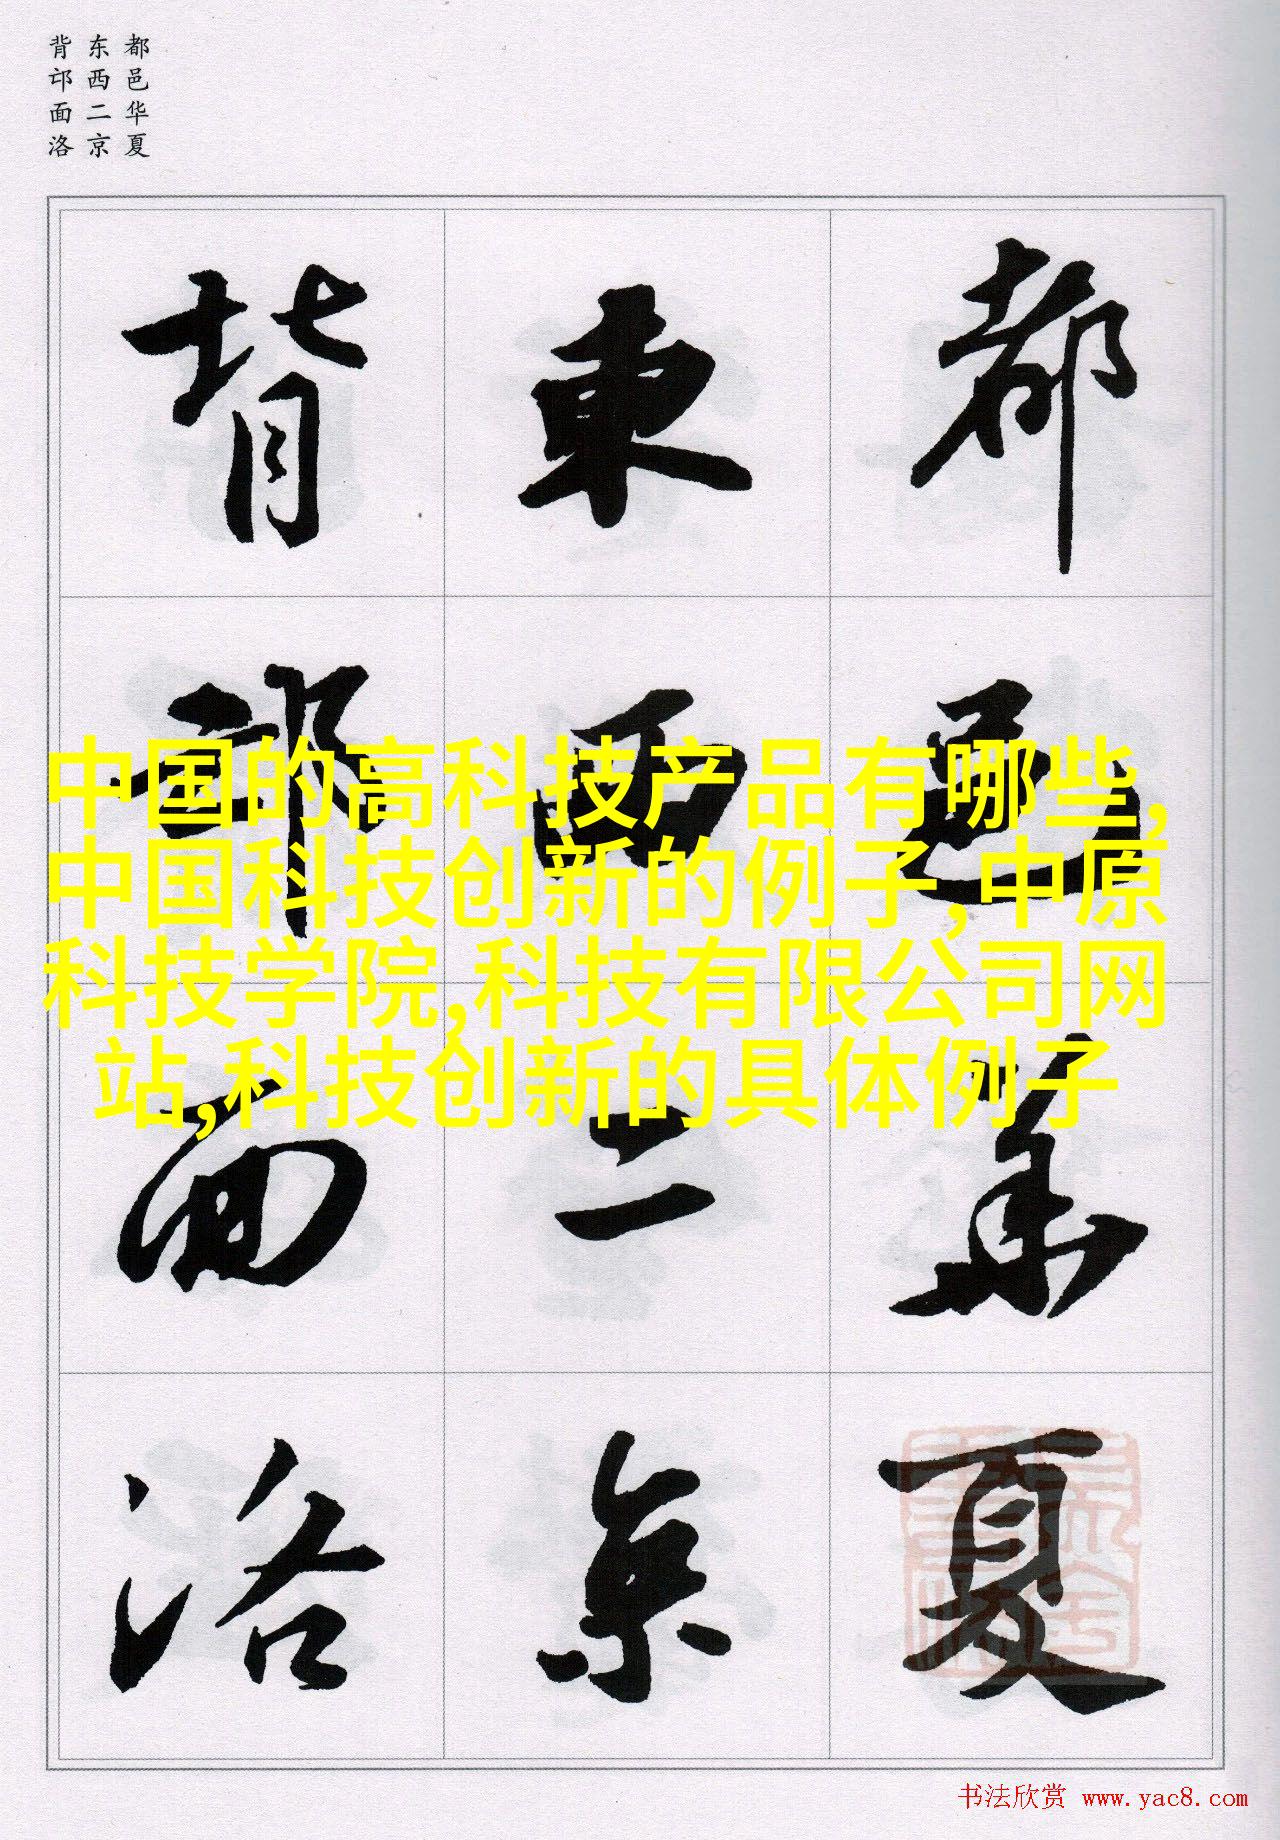 都邑华夏
东西二京
背邙面洛
都邑華夏
東西二京
背邙面洛
中国的高科技产品有哪些,
中国科技创新的例子,中原
科技学院,科技有限公司网
站,科技创新的具体例子
书法欣赏 www.yac8.com